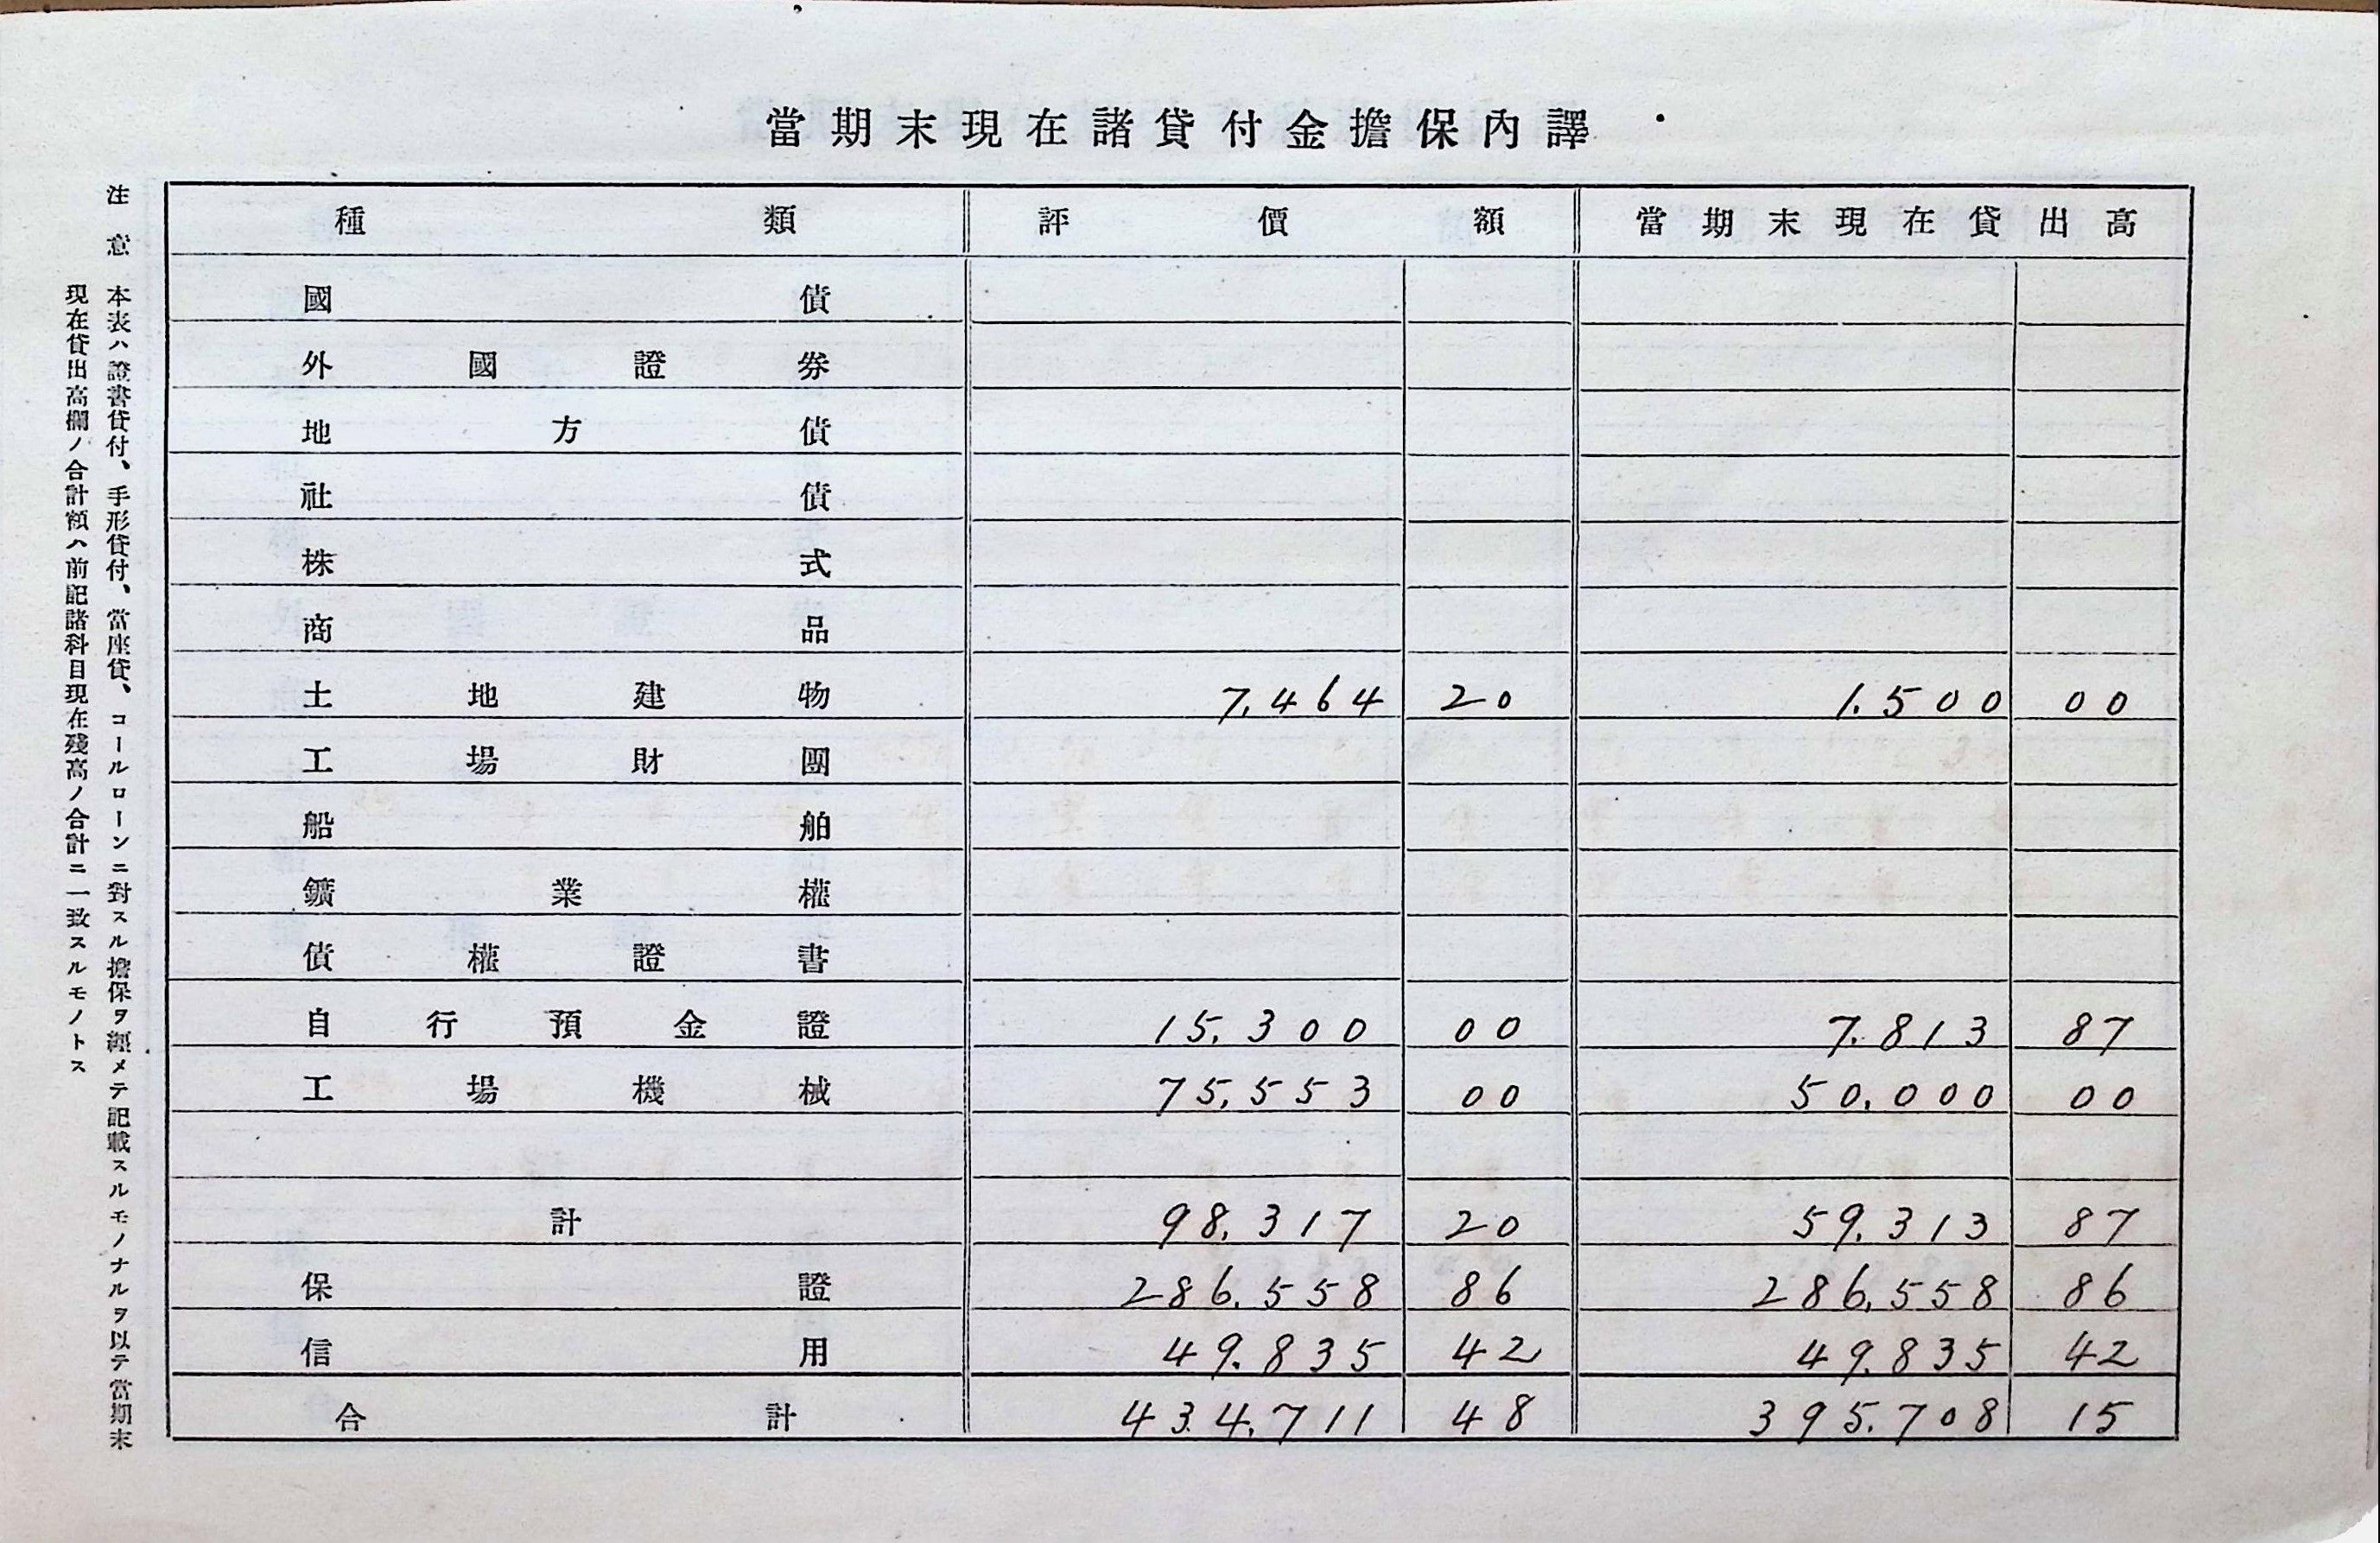 當期末現在諸貸付金擔保內譯
種類 評價額 當期末現在貸出高
國債
外國證券
地方債
社債
株式
商品
土地建物 7,464 20 1.500 00
工場財團
船舶
鑛業權
債權證書
自行預金證 15,300 00 7.813 87
工場機械 75,553 00 50,000 00
計 98,317 20 59,313 87
保證 286,558 86 286,558 86
信用 49.835 42 49.835 42
合計 434,711 48 395.708 15
注意 本表ハ證書貸付、手形貸付、當座貸、コールローンニ對スル擔保ヲ纒メテ記載スルモノナルヲ以テ當期末
現在貸出高欄ノ合計額ハ前記諸科目現在殘高ノ合計ニ一致スルモノトス